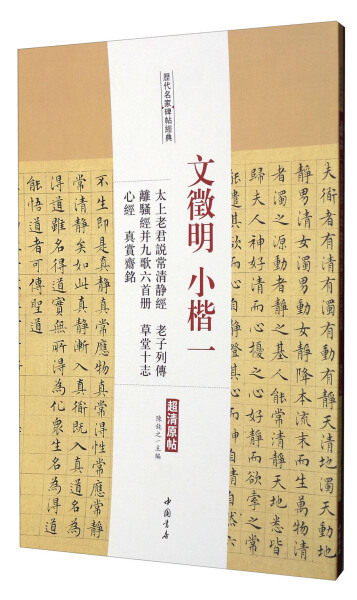 夫衜者有清有濁有動有靜天清地濁天
靜男清女濁男動女靜降本流末而生萬物
者濁之源動者靜之基人能常清靜天地悉皆
歸夫人神好清而心擾之心好靜而欲牽之常
能遣其欲而心自靜澄其心而神自清自然六
歷代名家碑帖經典
文徵明 小楷一
太上老君説常清静經 老子列傳
離騷經并九歌六首册 草堂十志
心經 真賞齋銘
超清原帖
陳鈍之·主編
中國書店
不生即是真靜真常應物真常得性常應常
常清靜矣如此真靜漸入真衜既入真衜名
得道雖名得道實無所得為化衆生名為得道
能悟道者可傳聖道